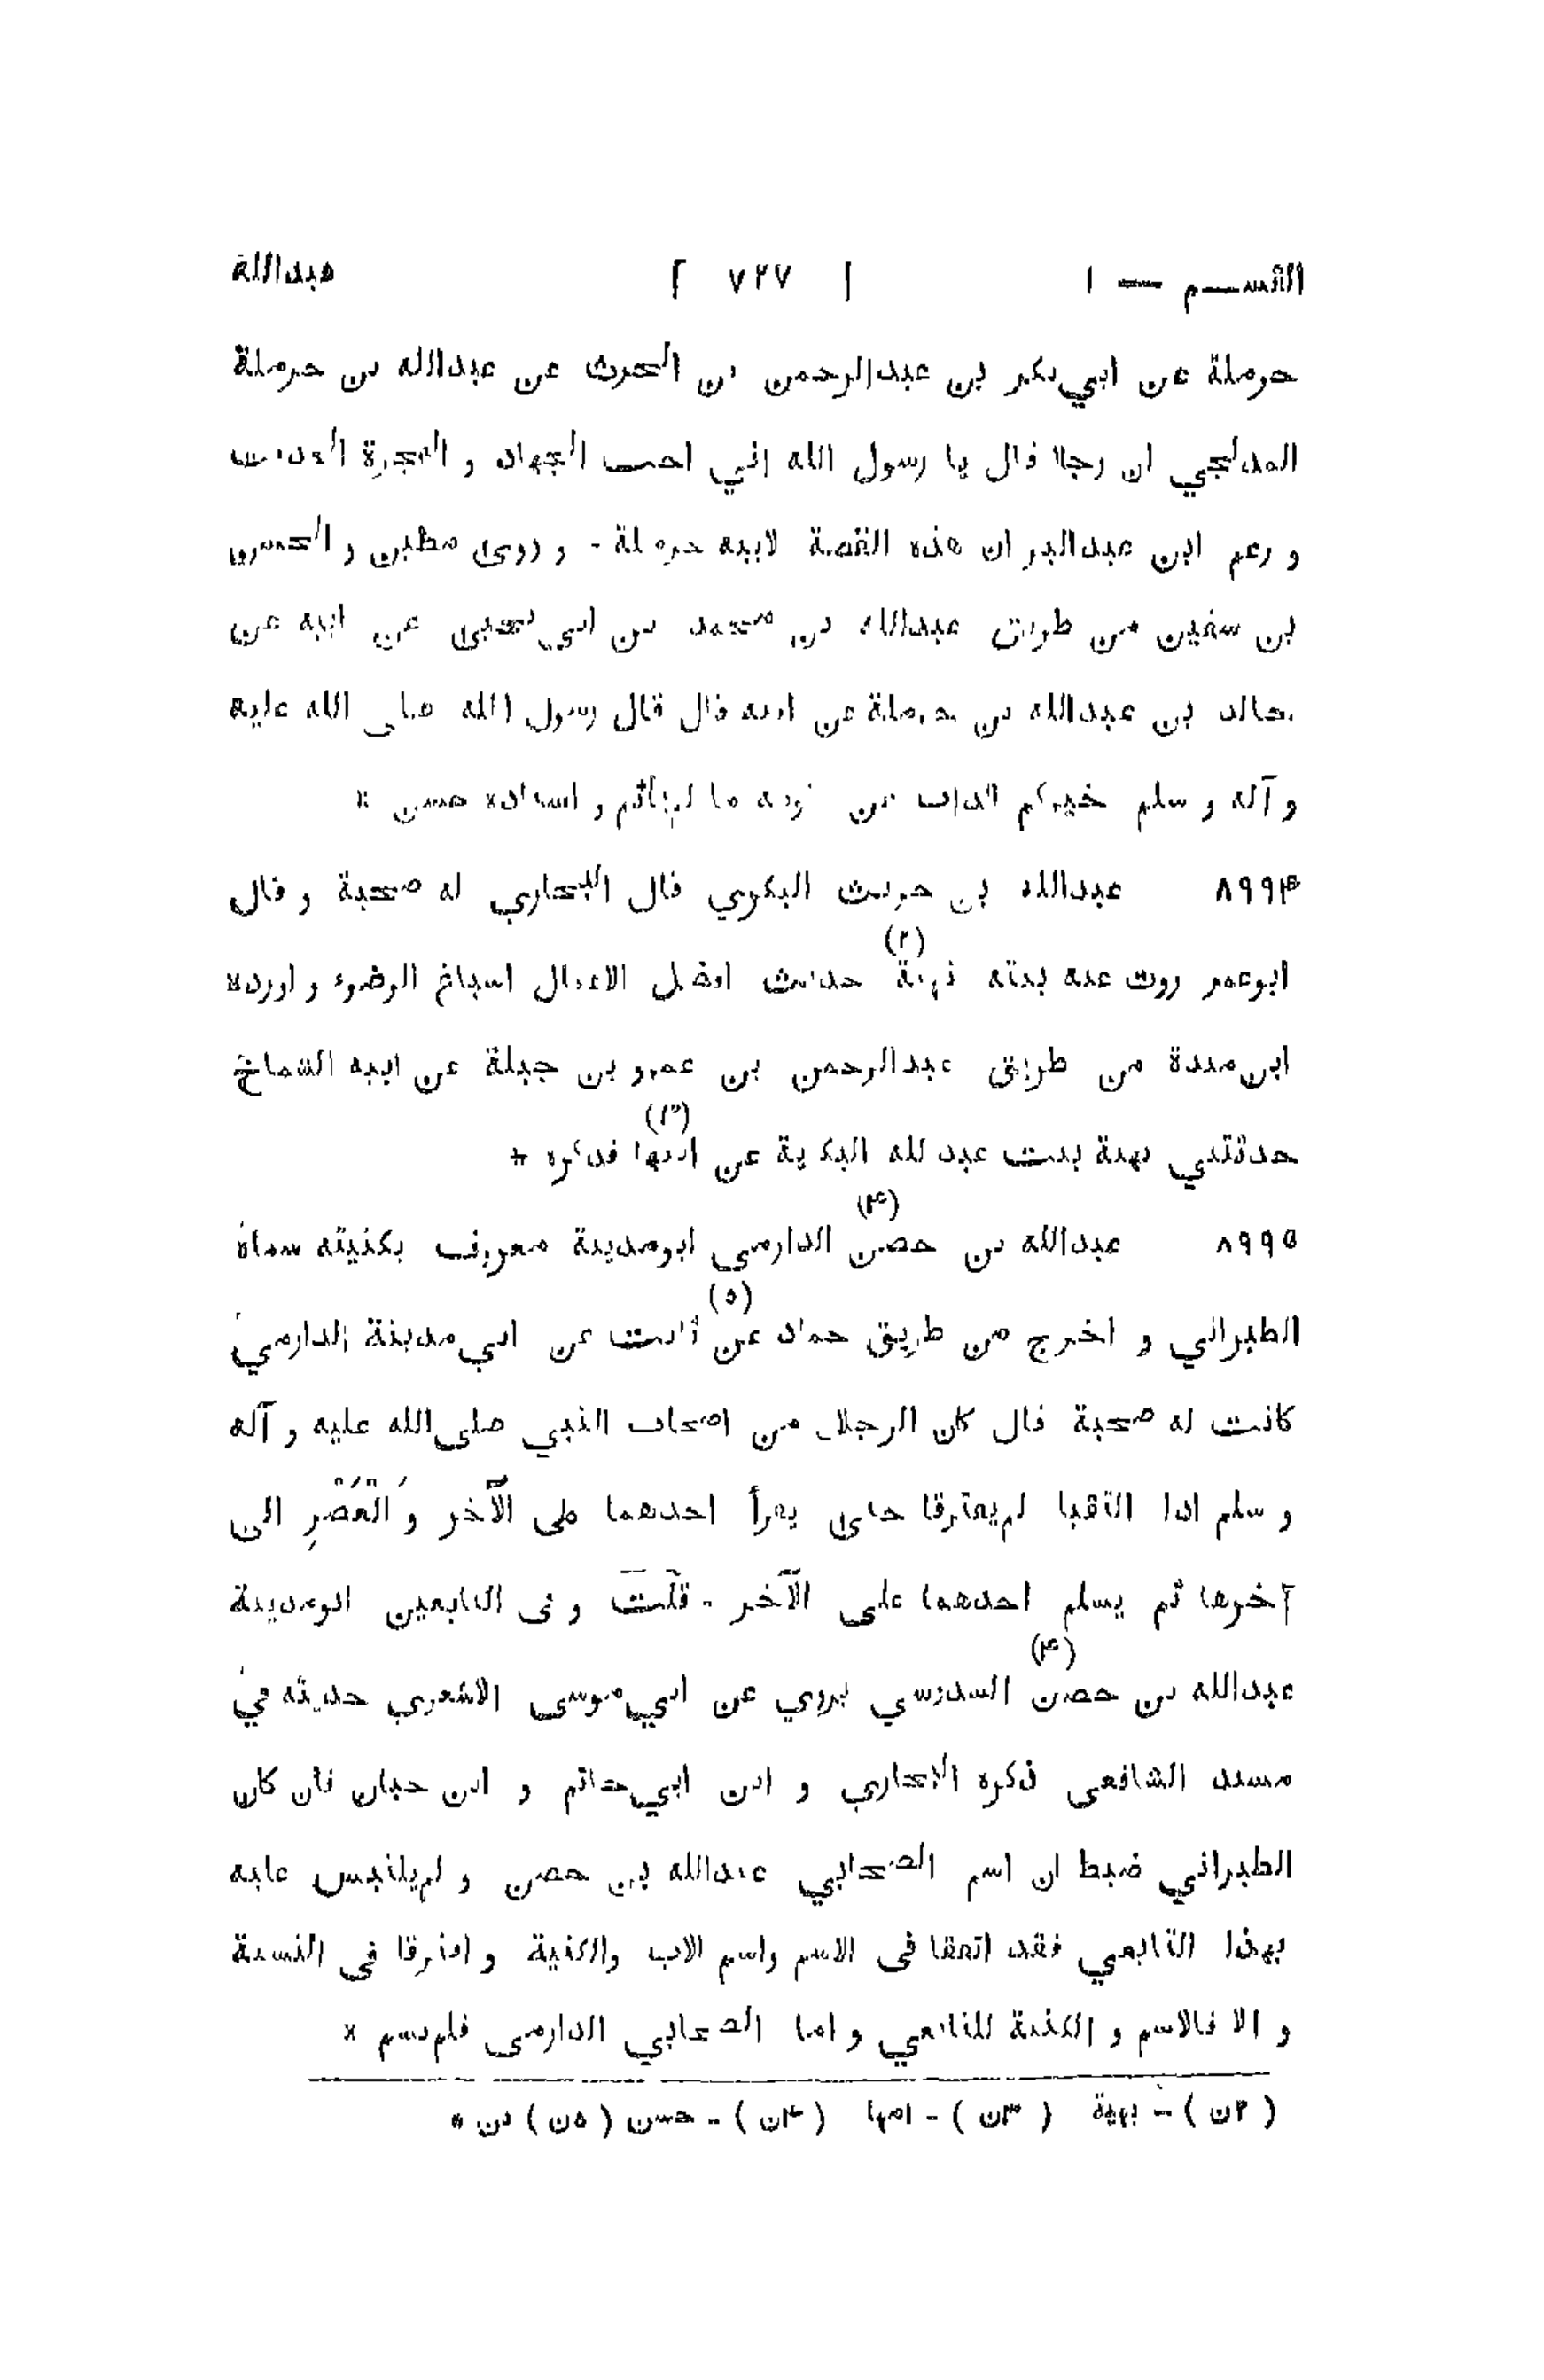 القسم — ١ [ ٧٢٧ ] عبدالله
حرملة عن ابي بكر بن عبدالرحمن بن الحرث عن عبدالله بن حرملة
المدلجي ان رجلا قال يا رسول الله اني احب الجهاد و الهجرة الحديث
و زعم ابن عبدالبر ان هذه القصة لابيه حرملة - و روى مطين و الحسن
بن سفين من طريق عبدالله بن محمد بن ابي يحيى عن ابيه عن
خالد بن عبدالله بن حرملة عن ابيه قال قال رسول الله صلى الله عليه
و آله و سلم خيركم الداب عن قومه ما لم يأثم و اسناده حسن *
٨٩٩٤ عبدالله بن حريث البكري قال البخاري له صحبة و قال
ابو عمر روت عنه بنته نهية (٢) حديث افضل الاعمال اسباغ الوضوء و اورده
ابن مندة من طريق عبدالرحمن بن عمرو بن جبلة عن ابيه الشماخ
حدثتني نهية بنت عبد لله البكرية عن ابيها (٣) فذكره *
٨٩٩٥ عبدالله بن حصن (٤) الدارمى ابومدينة معروف بكنيته سماه
الطبراني و اخرج من طريق حماد عن (٥) ثابت عن ابي مدينة الدارمي
كانت له صحبة قال كان الرجلان من اصحاب النبي صلى الله عليه و آله
و سلم اذا التقيا لم يفترقا حتى يقرأ احدهما على الآخر وَ الْعَصْرِ الى
آخرها ثم يسلم احدهما على الآخر - قلت و فى التابعين ابومدينة
عبدالله بن حصن (٤) السدوسي يروي عن ابي موسى الاشعري حديثه في
مسند الشافعى ذكره البخاري و ابن ابي حاتم و ابن حبان فان كان
الطبراني ضبط ان اسم الصحابي عبدالله بن حصن و لم يلتبس عليه
بهذا التابعي فقد اتفقا فى الاسم واسم الاب والكنية و افترقا فى النسبة
و الا فالاسم و الكنية للتابعي و اما الصحابي الدارمى فلم يسم *
( ٢ن ) - بهية ( ٣ن ) - امها ( ٤ن ) - حسن ( ٥ن ) بن *